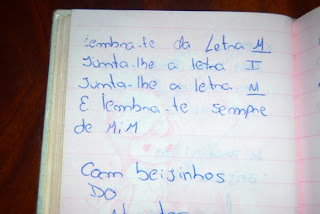 Lembra-te da Letra M
Junta-lhe a letra I
Junta-lhe a letra M
E lembra-te sempre
de MiM
Com beijinhos
DO